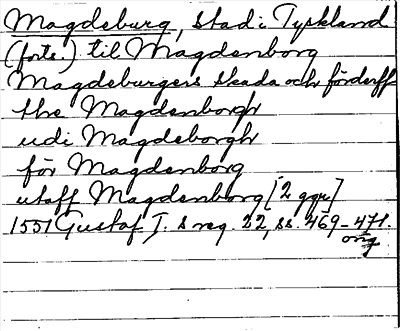 Magdeburg, stad i Tyskland
(forts.) til Magdenborg
Magdeburgers skada och förderff
the Magdenborgh
udi Magdeborgh
för Magdenborg
utaff Magdenborg [2 ggr]
1551 Gustaf I. s reg. 22, ss. 469-471.